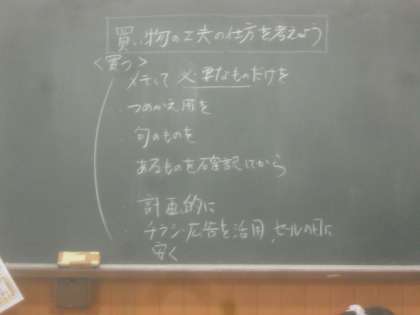 買い物の工夫の仕方を考えよう
<買う>
必要なものだけを
つめかえ用を
旬のものを
あるものを確認してから
・計画的に
・チラシ・広告を活用、セールの日に
安く